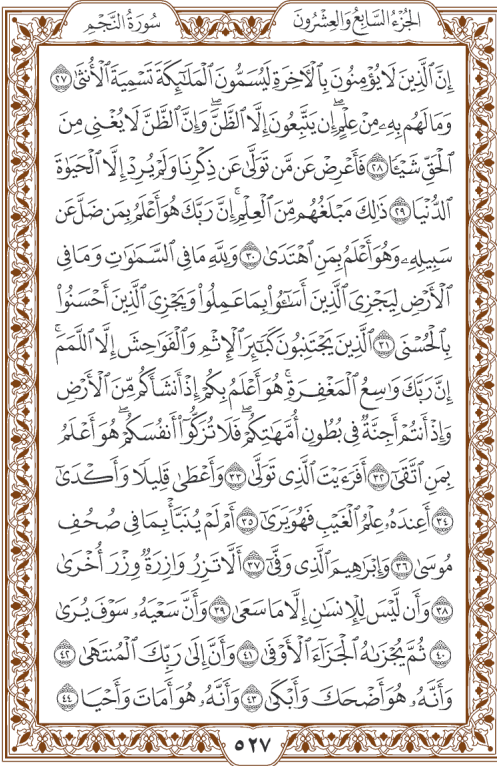 الجُزْءُ السَّابِعُ وَالعِشْرُونَ
سُورَةُ النَّجْمِ
إِنَّ ٱلَّذِينَ لَا يُؤْمِنُونَ بِٱلْأَخِرَةِ لَيُسَمُّونَ ٱلْمَلَٰٓئِكَةَ تَسْمِيَةَ ٱلْأُنثَىٰ ٢٧
وَمَا لَهُم بِهِۦ مِنْ عِلْمٍ ۖ إِن يَتَّبِعُونَ إِلَّا ٱلظَّنَّ ۖ وَإِنَّ ٱلظَّنَّ لَا يُغْنِى مِنَ
ٱلْحَقِّ شَيْـًٔا ٢٨ فَأَعْرِضْ عَن مَّن تَوَلَّىٰ عَن ذِكْرِنَا وَلَمْ يُرِدْ إِلَّا ٱلْحَيَوٰةَ
ٱلدُّنْيَا ٢٩ ذَٰلِكَ مَبْلَغُهُم مِّنَ ٱلْعِلْمِ ۚ إِنَّ رَبَّكَ هُوَ أَعْلَمُ بِمَن ضَلَّ عَن
سَبِيلِهِۦ وَهُوَ أَعْلَمُ بِمَنِ ٱهْتَدَىٰ ٣٠ وَلِلَّهِ مَا فِى ٱلسَّمَٰوَٰتِ وَمَا فِى
ٱلْأَرْضِ لِيَجْزِىَ ٱلَّذِينَ أَسَٰٓـُٔوا۟ بِمَا عَمِلُوا۟ وَيَجْزِىَ ٱلَّذِينَ أَحْسَنُوا۟
بِٱلْحُسْنَى ٣١ ٱلَّذِينَ يَجْتَنِبُونَ كَبَٰٓئِرَ ٱلْإِثْمِ وَٱلْفَوَٰحِشَ إِلَّا ٱللَّمَمَ ۚ
إِنَّ رَبَّكَ وَٰسِعُ ٱلْمَغْفِرَةِ ۚ هُوَ أَعْلَمُ بِكُمْ إِذْ أَنشَأَكُم مِّنَ ٱلْأَرْضِ
وَإِذْ أَنتُمْ أَجِنَّةٌ فِى بُطُونِ أُمَّهَٰتِكُمْ ۖ فَلَا تُزَكُّوٓا۟ أَنفُسَكُمْ ۖ هُوَ أَعْلَمُ
بِمَنِ ٱتَّقَىٰٓ ٣٢ أَفَرَءَيْتَ ٱلَّذِى تَوَلَّىٰ ٣٣ وَأَعْطَىٰ قَلِيلًا وَأَكْدَىٰٓ
٣٤ أَعِندَهُۥ عِلْمُ ٱلْغَيْبِ فَهُوَ يَرَىٰٓ ٣٥ أَمْ لَمْ يُنَبَّأْ بِمَا فِى صُحُفِ
مُوسَىٰ ٣٦ وَإِبْرَٰهِيمَ ٱلَّذِى وَفَّىٰٓ ٣٧ أَلَّا تَزِرُ وَازِرَةٌ وِزْرَ أُخْرَىٰ
٣٨ وَأَن لَّيْسَ لِلْإِنسَٰنِ إِلَّا مَا سَعَىٰ ٣٩ وَأَنَّ سَعْيَهُۥ سَوْفَ يُرَىٰ
٤٠ ثُمَّ يُجْزَىٰهُ ٱلْجَزَآءَ ٱلْأَوْفَىٰ ٤١ وَأَنَّ إِلَىٰ رَبِّكَ ٱلْمُنتَهَىٰ ٤٢
وَأَنَّهُۥ هُوَ أَضْحَكَ وَأَبْكَىٰ ٤٣ وَأَنَّهُۥ هُوَ أَمَاتَ وَأَحْيَا ٤٤
٥٢٧